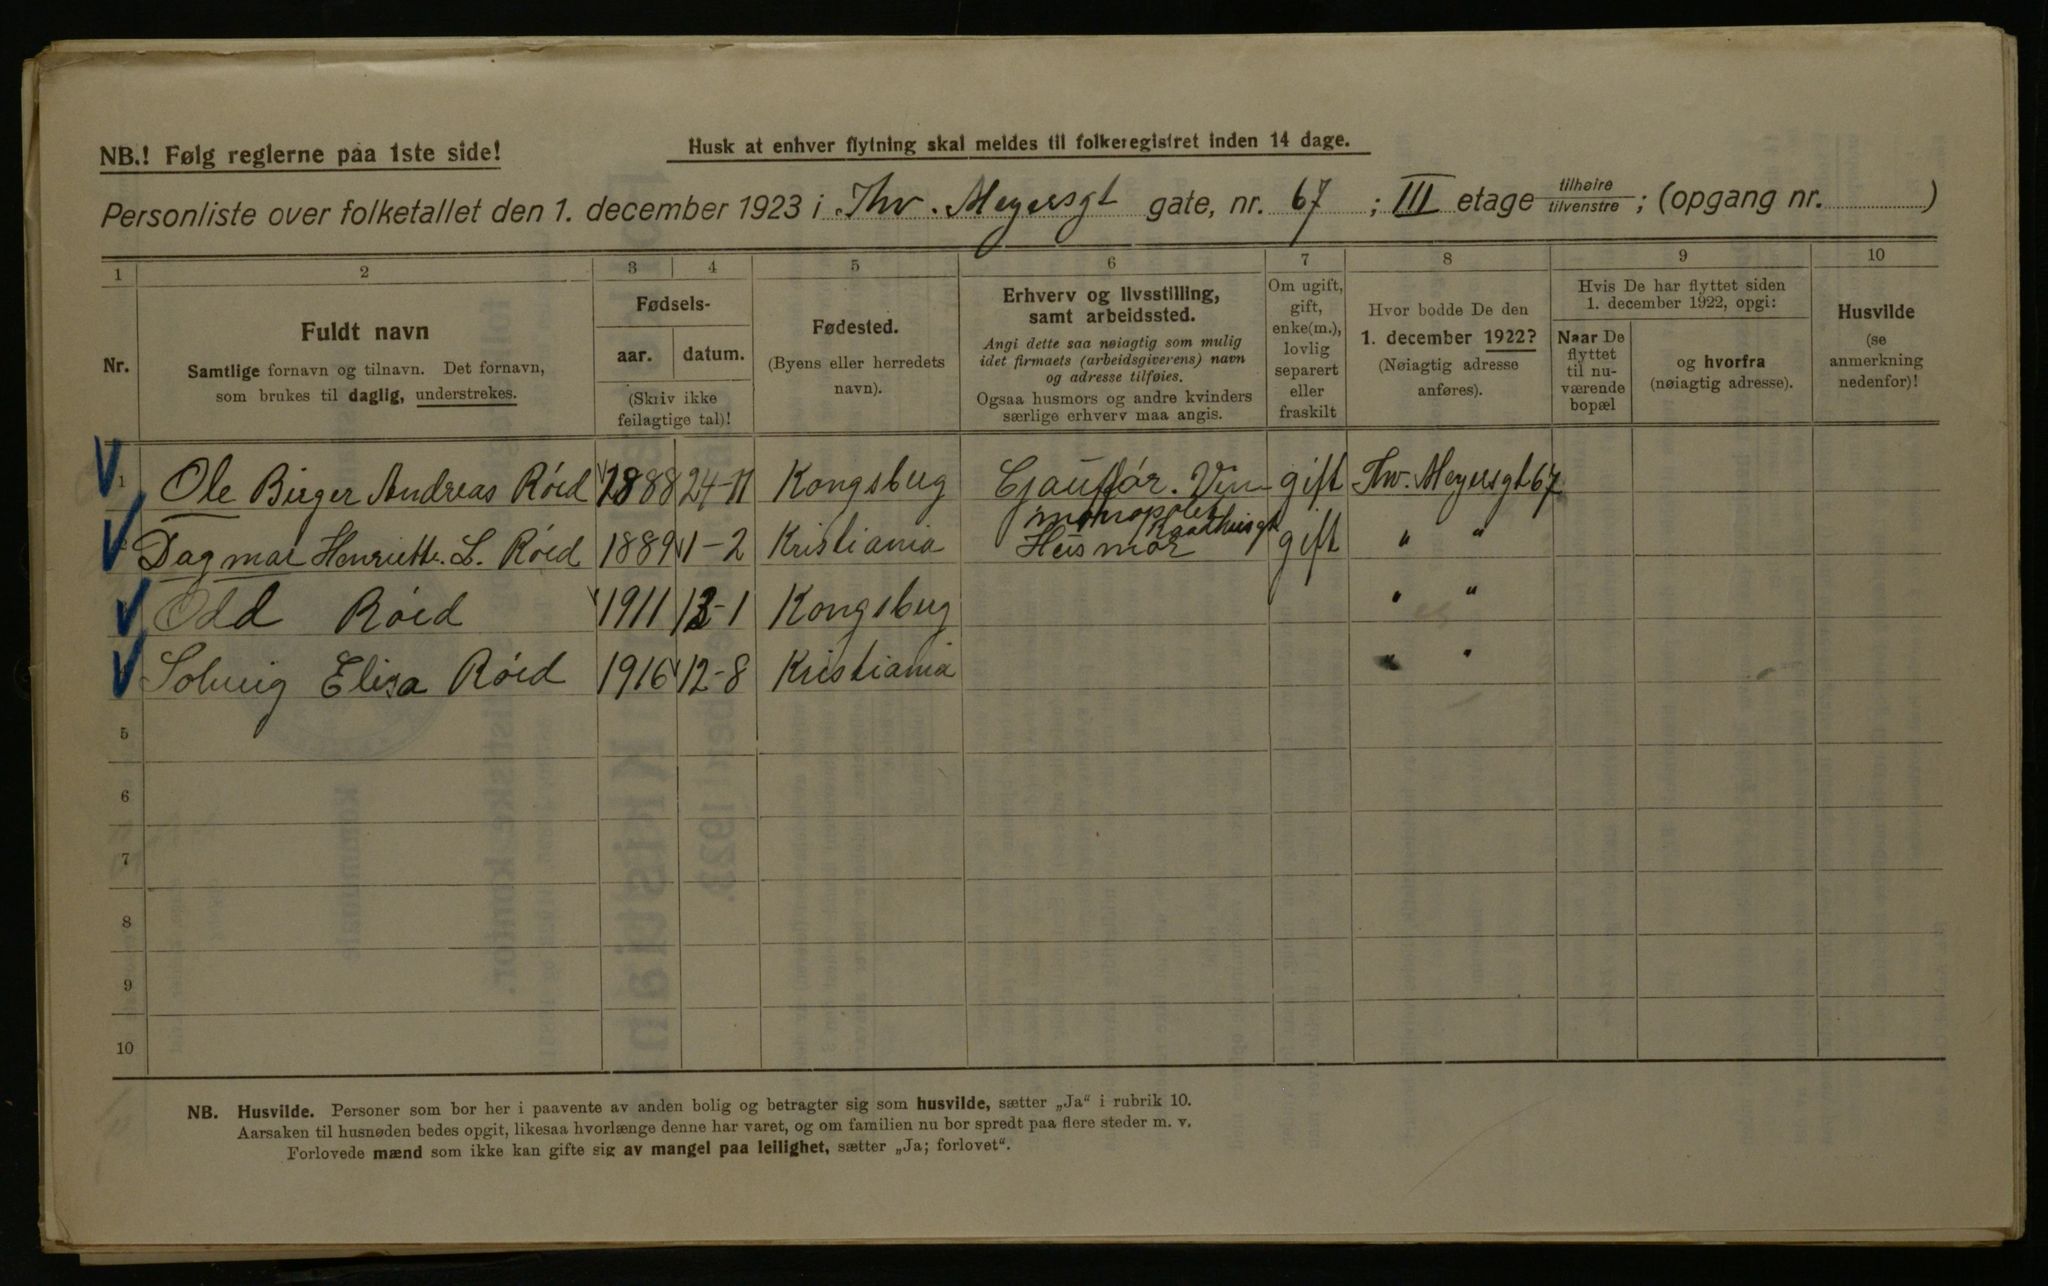 NB.! Følg reglerne paa 1ste side!
Husk at enhver flytning skal meldes til folkeregistret inden 14 dage.
Personliste over folketallet den 1. december 1923 i Thv. Meyersgt gate, nr. 67; III etage tilhøire tilvenstre; (opgang nr. )
1 2 3 4 5 6 7 8 9 10
Nr.
Fuldt navn
Samtlige fornavn og tilnavn. Det fornavn,
som brukes til daglig, understrekes.
Fødsels-
aar. datum.
(Skriv ikke
feilagtige tal)!
Fødested.
(Byens eller herredets
navn).
Erhverv og livsstilling,
samt arbeidssted.
Angi dette saa nøiagtig som mulig
idet firmaets (arbeidsgiverens) navn
og adresse tilføies.
Ogsaa husmors og andre kvinders
særlige erhverv maa angis.
Om ugift,
gift,
enke(m.),
lovlig
separert
eller
fraskilt
Hvor bodde De den
1. december 1922?
(Nøiagtig adresse
anføres).
Hvis De har flyttet siden
1. december 1922, opgi:
Naar De
flyttet
til nu-
værende
bopæl
og hvorfra
(nøiagtig adresse).
Husvilde
(se
anmerkning
nedenfor)!
1 Ole Birger Andreas Róed 1888 24-11 Kongsberg Cjauffór. Vin gift Thv. Meyersgt 67
monopolet
Raadhusgt
Dagmar Henriette. L. Róed 1889 1-2 Kristiania Husmor gift " "
Odd Róed 1911 13-1 Kongsberg " "
Solveig Elisa Róed 1916 12-8 Kristiania " "
5
6
7
8
9
10
NB. Husvilde. Personer som bor her i paavente av anden bolig og betragter sig som husvilde, sætter „Ja“ i rubrik 10.
Aarsaken til husnøden bedes opgit, likesaa hvorlænge denne har varet, og om familien nu bor spredt paa flere steder m. v.
Forlovede mænd som ikke kan gifte sig av mangel paa leilighet, sætter „Ja; forlovet“.